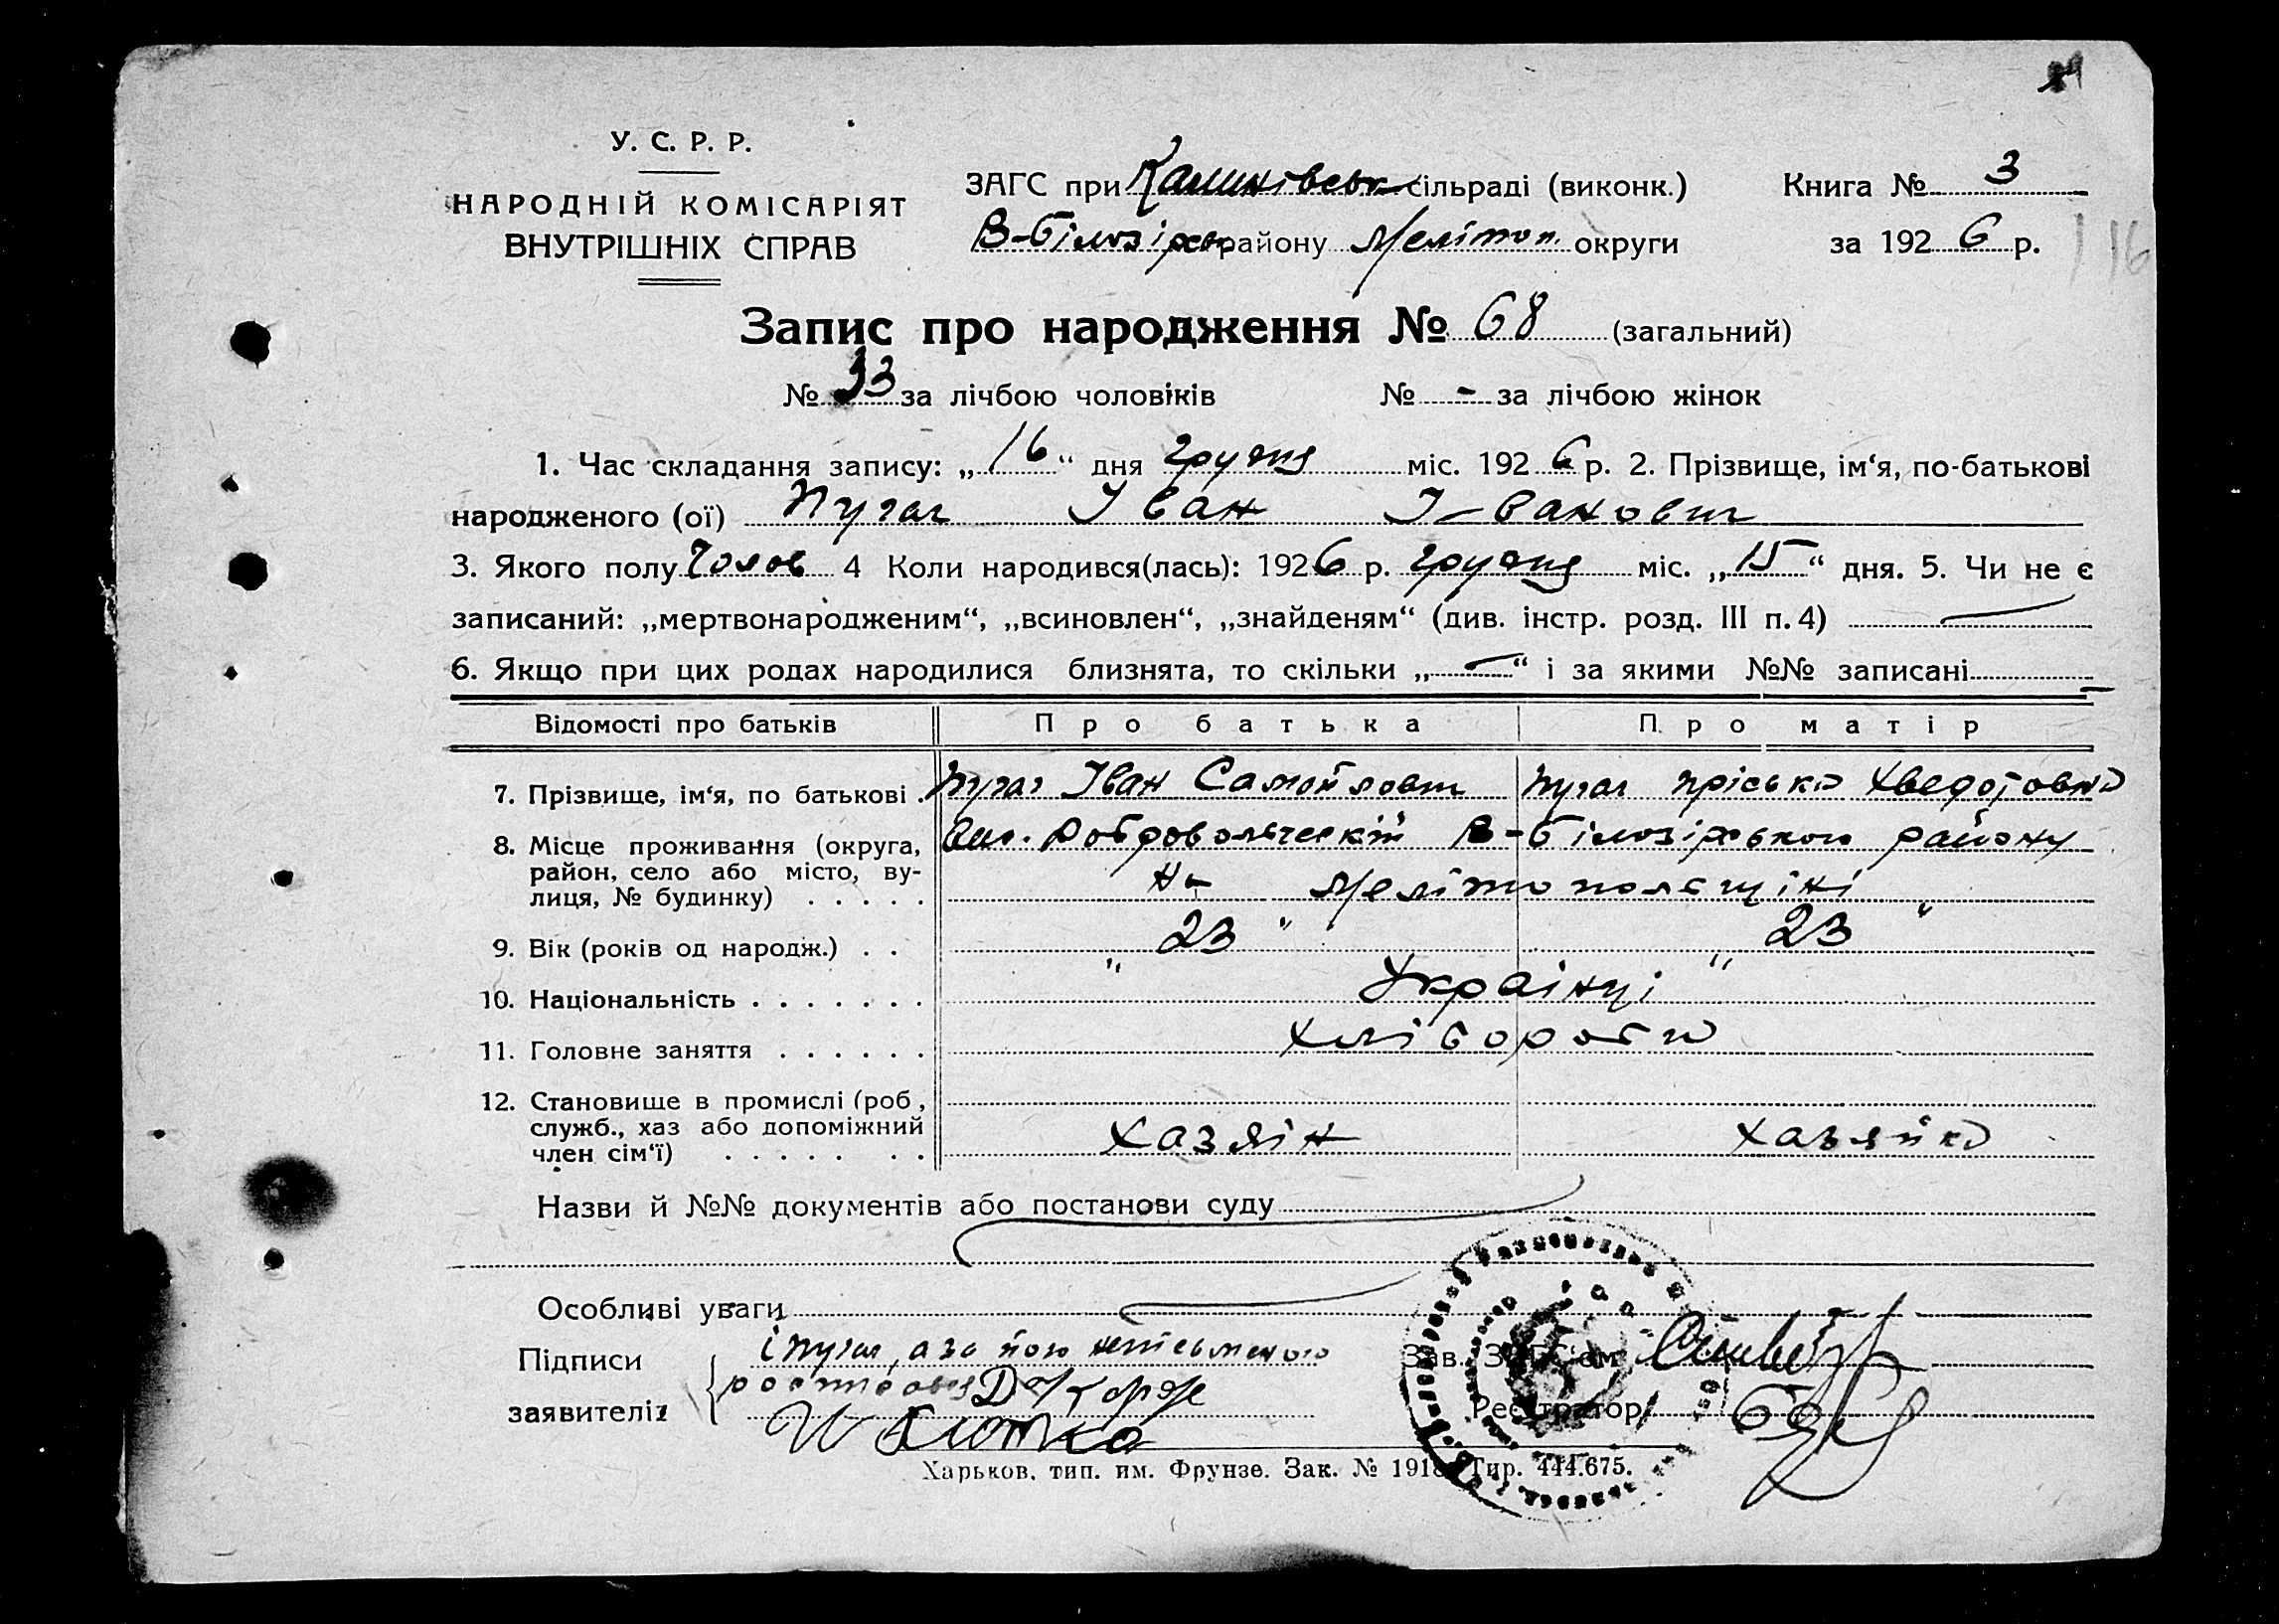 У. С. Р. Р.
НАРОДНІЙ КОМІСАРІЯТ
ВНУТРІШНІХ СПРАВ
ЗАГС при Калинівськ сільраді (виконк.) Книга № 3
В-Білозірськ району Мелітоп. округи за 1926 р.
116
Запис про народження № 68 (загальний)
№ 33 за лічбою чоловіків № - за лічбою жінок
1. Час складання запису: „16“ дня грудня міс. 1926 р. 2. Прізвище, ім‘я, по-батькові
народженого (ої) Пугач Іван Іванович
3. Якого полу Чолов 4 Коли народився(лась): 1926 р. грудня міс. „15“ дня. 5. Чи не є
записаний: „мертвонародженим“, „всиновлен“, „знайденям“ (див. інстр. розд. III п. 4) —
6. Якщо при цих родах народилися близнята, то скільки „—“ і за якими №№ записані —
Відомості про батьків Про батька Про матір
7. Прізвище, ім‘я, по батькові . Пугач Іван Самойлович Пугач Пріська Хведотовна
8. Місце проживання (округа, Добровольческій В-Білозірського району
район, село або місто, ву-
лиця, № будинку) . . . . . На Мелітопольщині
9. Вік (років од народж.) . . 23 " 23 "
10. Національність . . . . . . . " Українці "
11. Головне заняття . . . . . . Хлібороби
12. Становище в промислі (роб,
служб., хаз або допоміжний
член сім‘ї) . . . . . . . Хазяїн Хазяйка
Назви й №№ документів або постанови суду
Особливі уваги
Підписи І Пугач, а за його неписьменого Зав. ЗАГС‘ом
заявителів Реєстратор
Харьков. тип. им. Фрунзе. Зак. № 1918 Тир. 444.675.